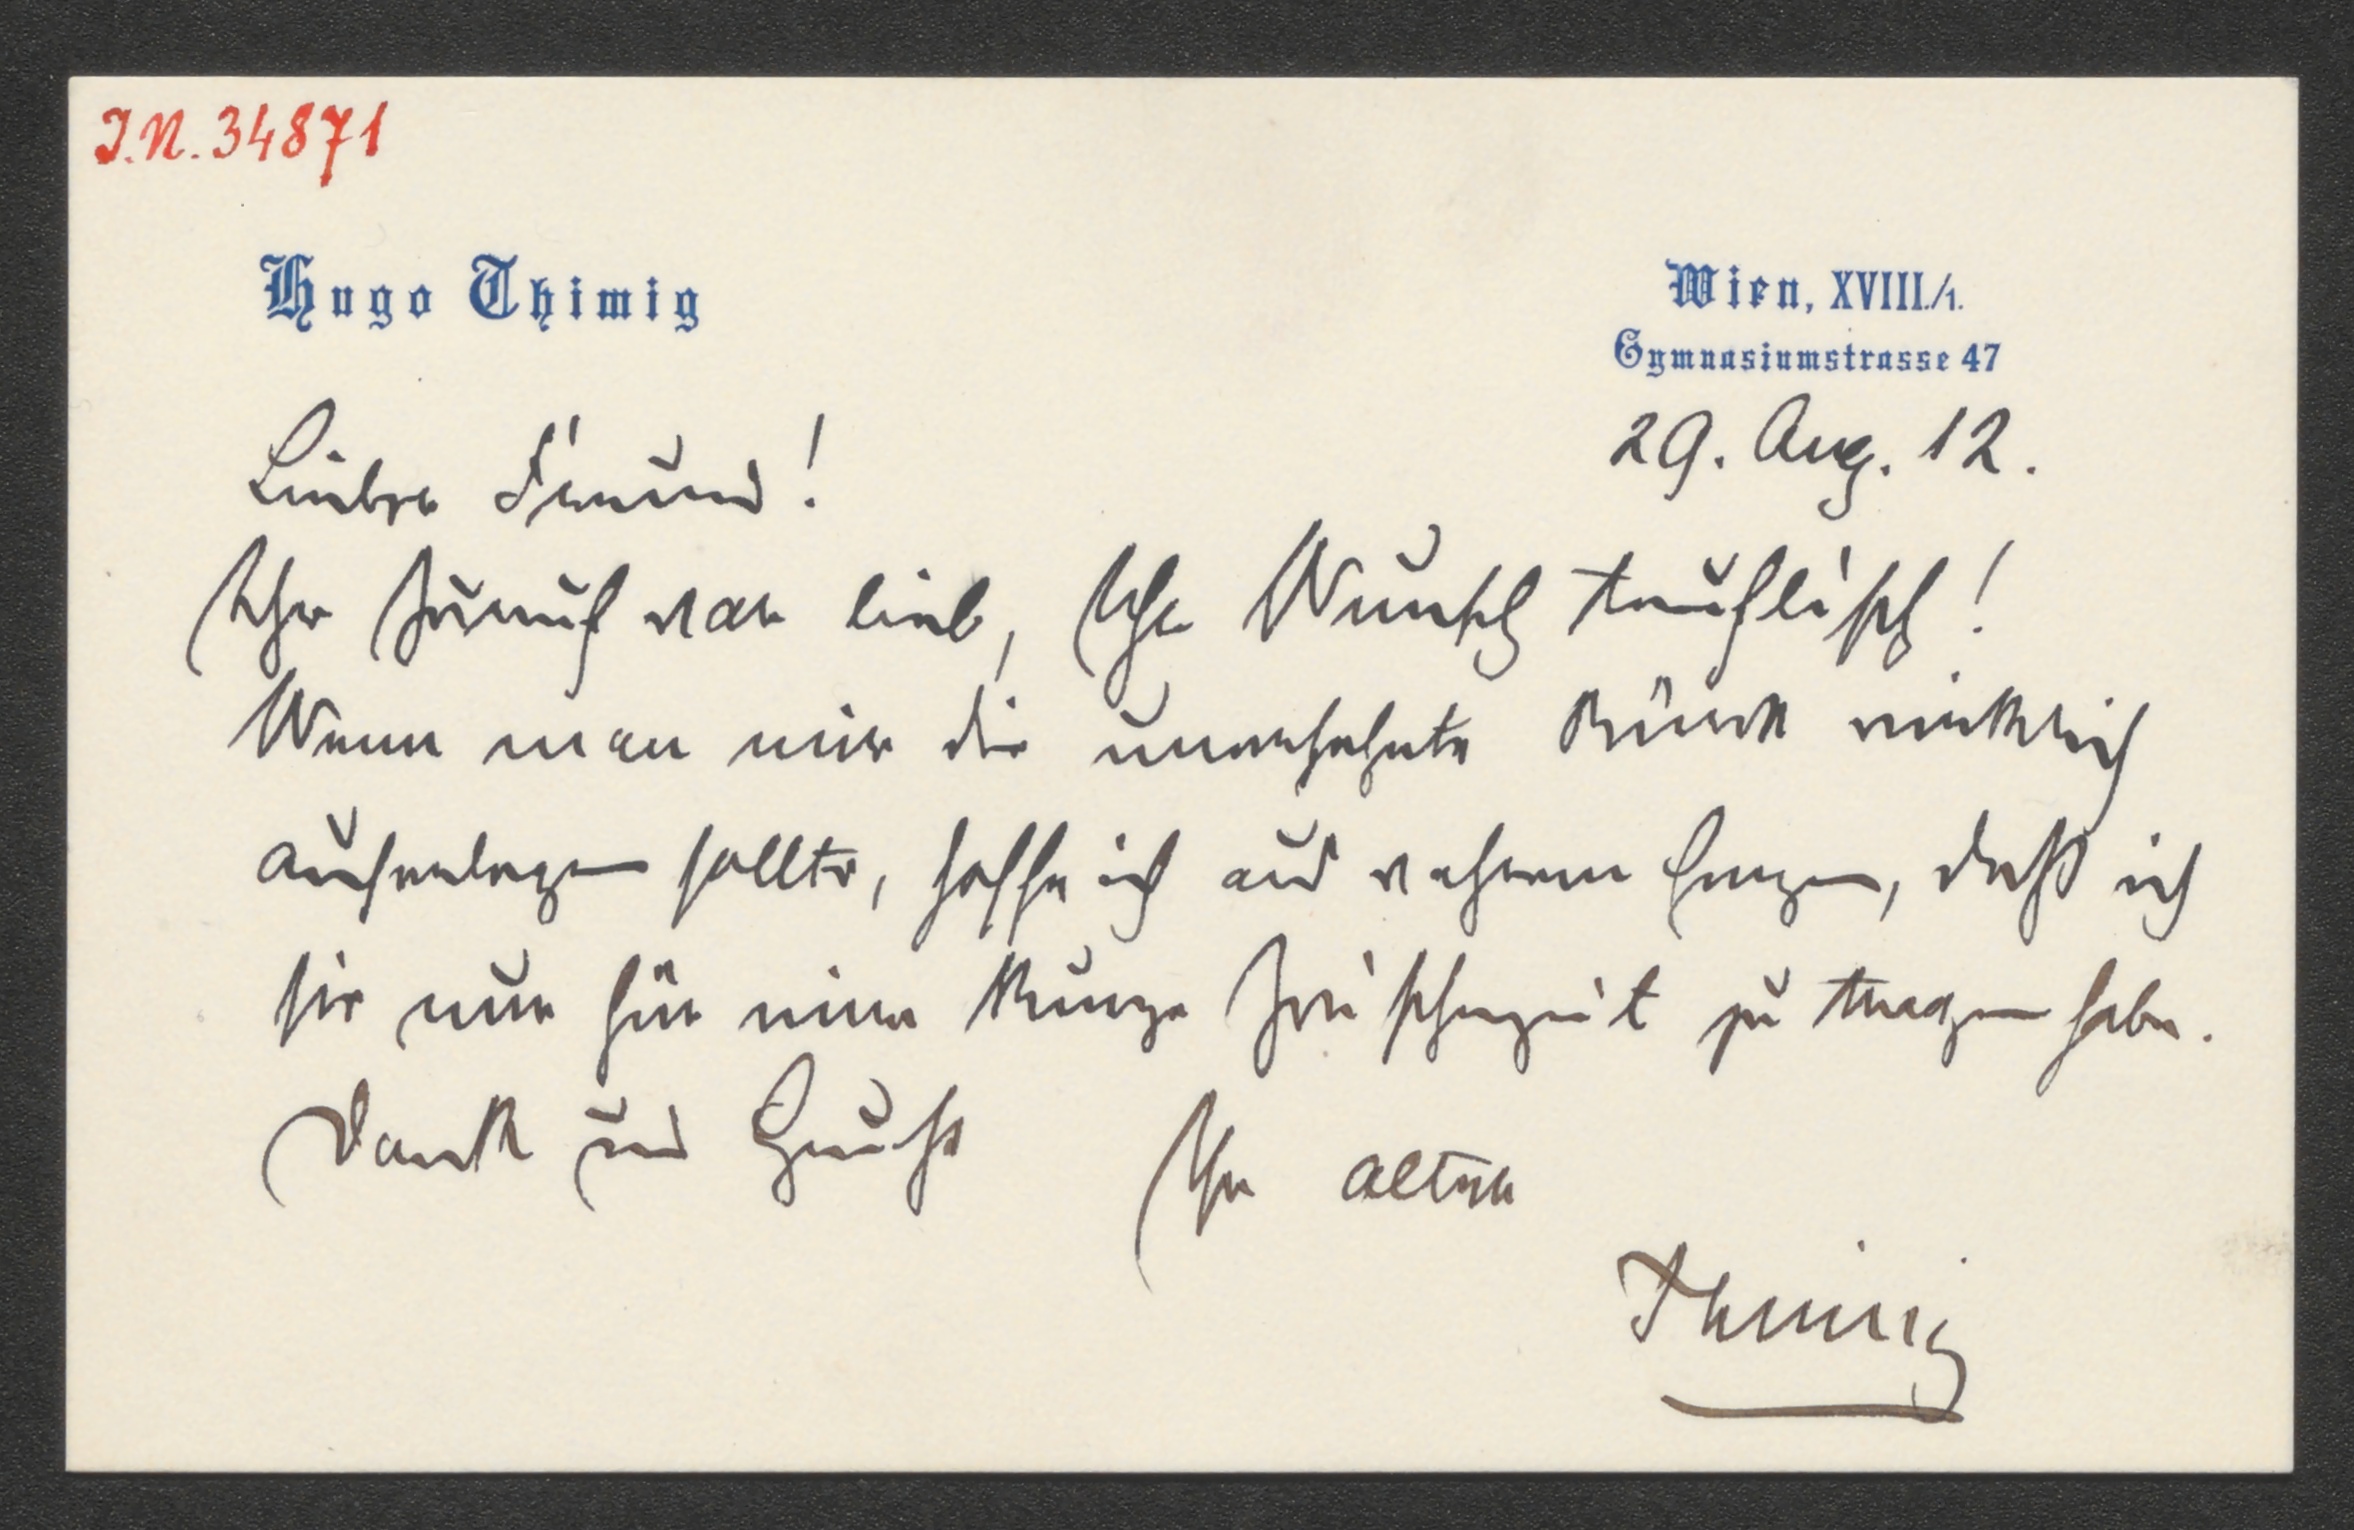 I.N. 34871
Hugo Thimig
Wien, XVIII./1.
Gymnasiumstrasse 47
29. Aug. 12.
Lieber Freund!
Ihr Zuruf war lieb, Ihr Wunsch teuflisch!
Wenn man mir die unersehnte Bürde wirklich
auferlegen sollte, hoffe ich aus wahrem Herzen, daß ich
sie nur für eine kurze Zwischenzeit zu tragen habe.
Dank und Gruß
Ihr alter
Thimig